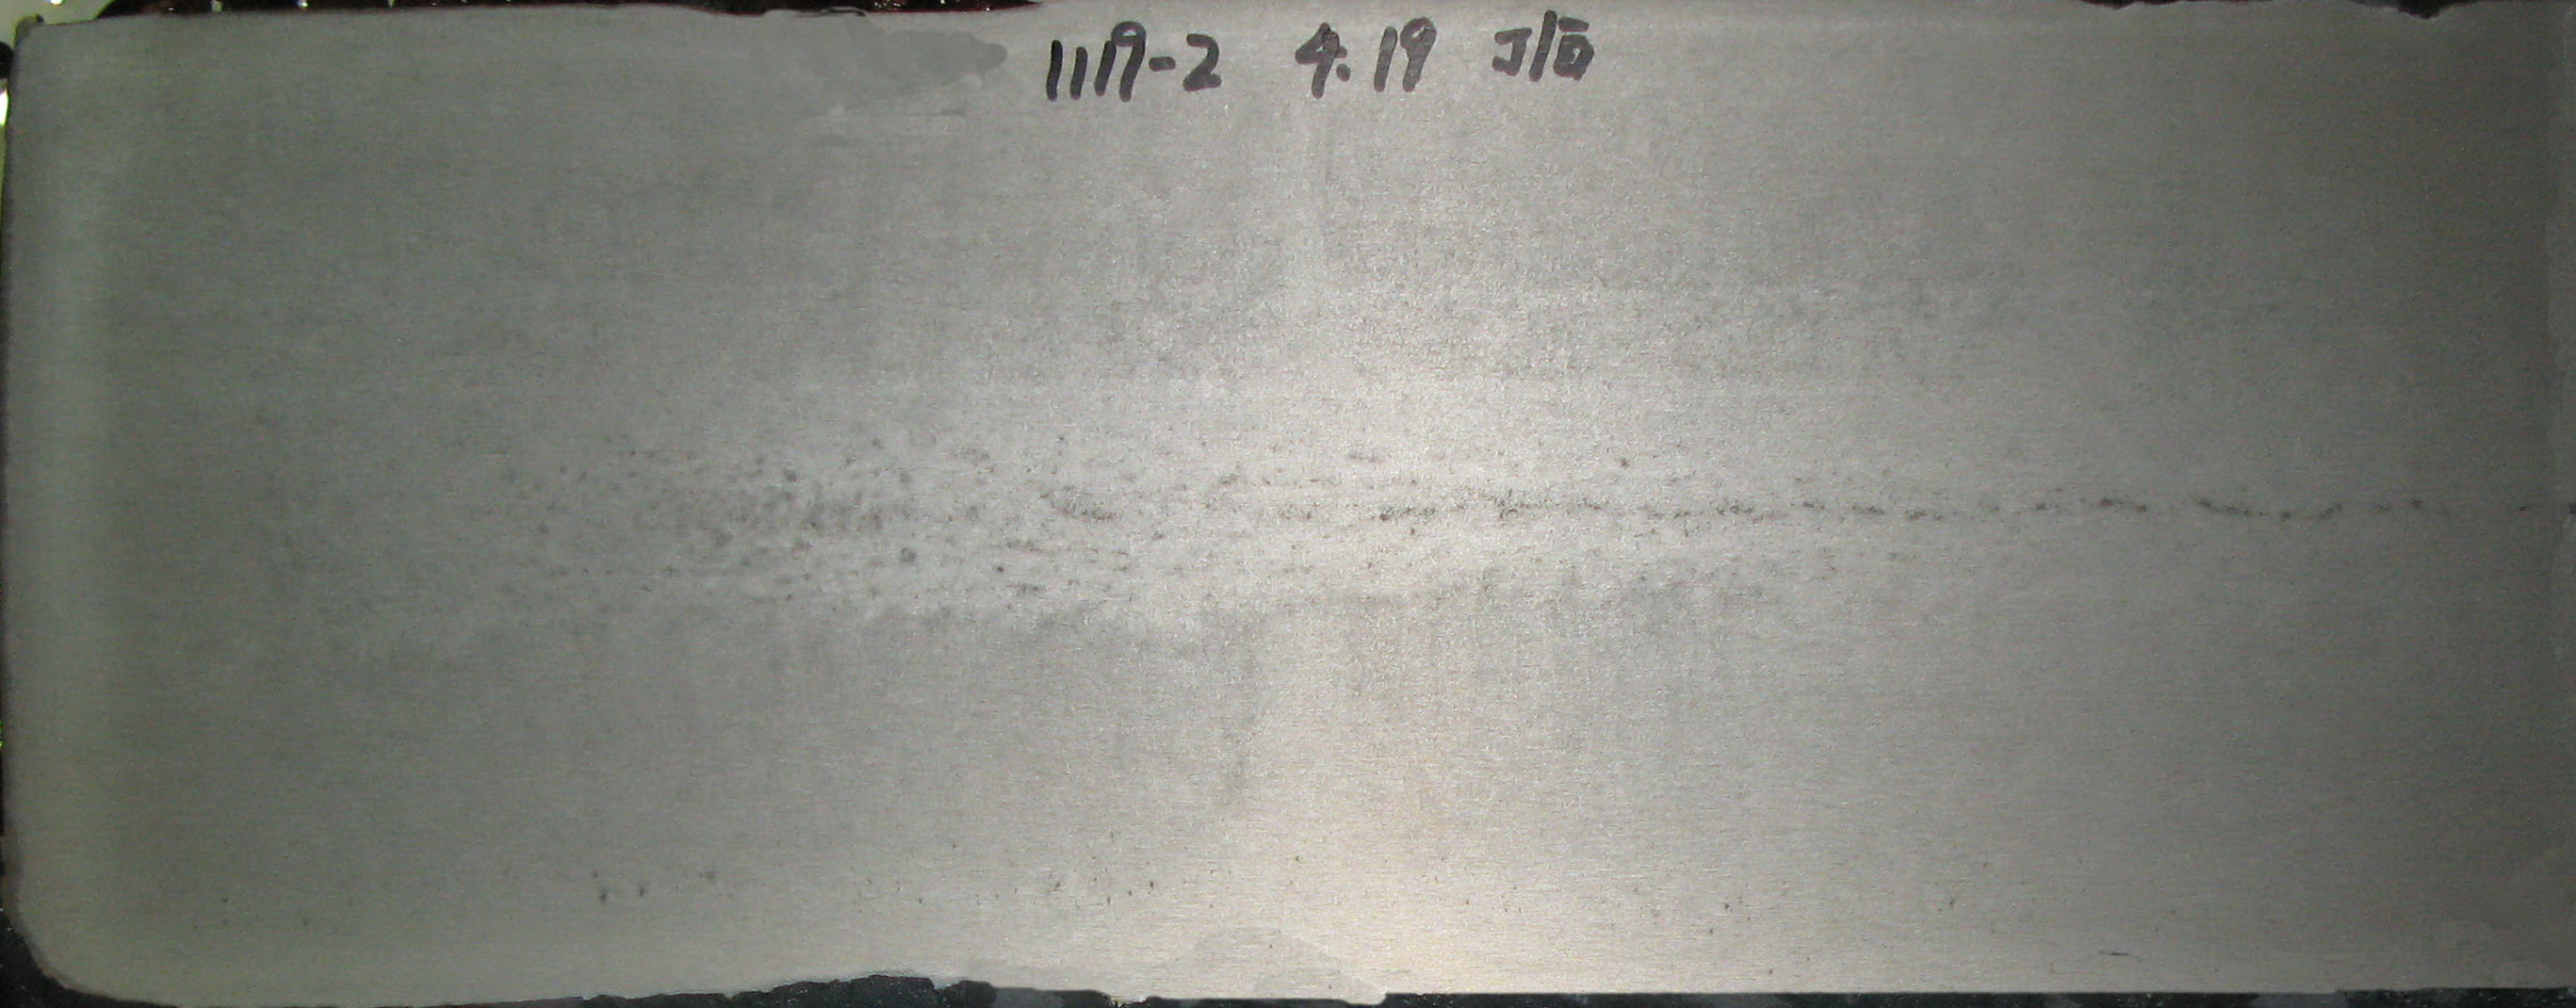 1119-2 4.19 J/后